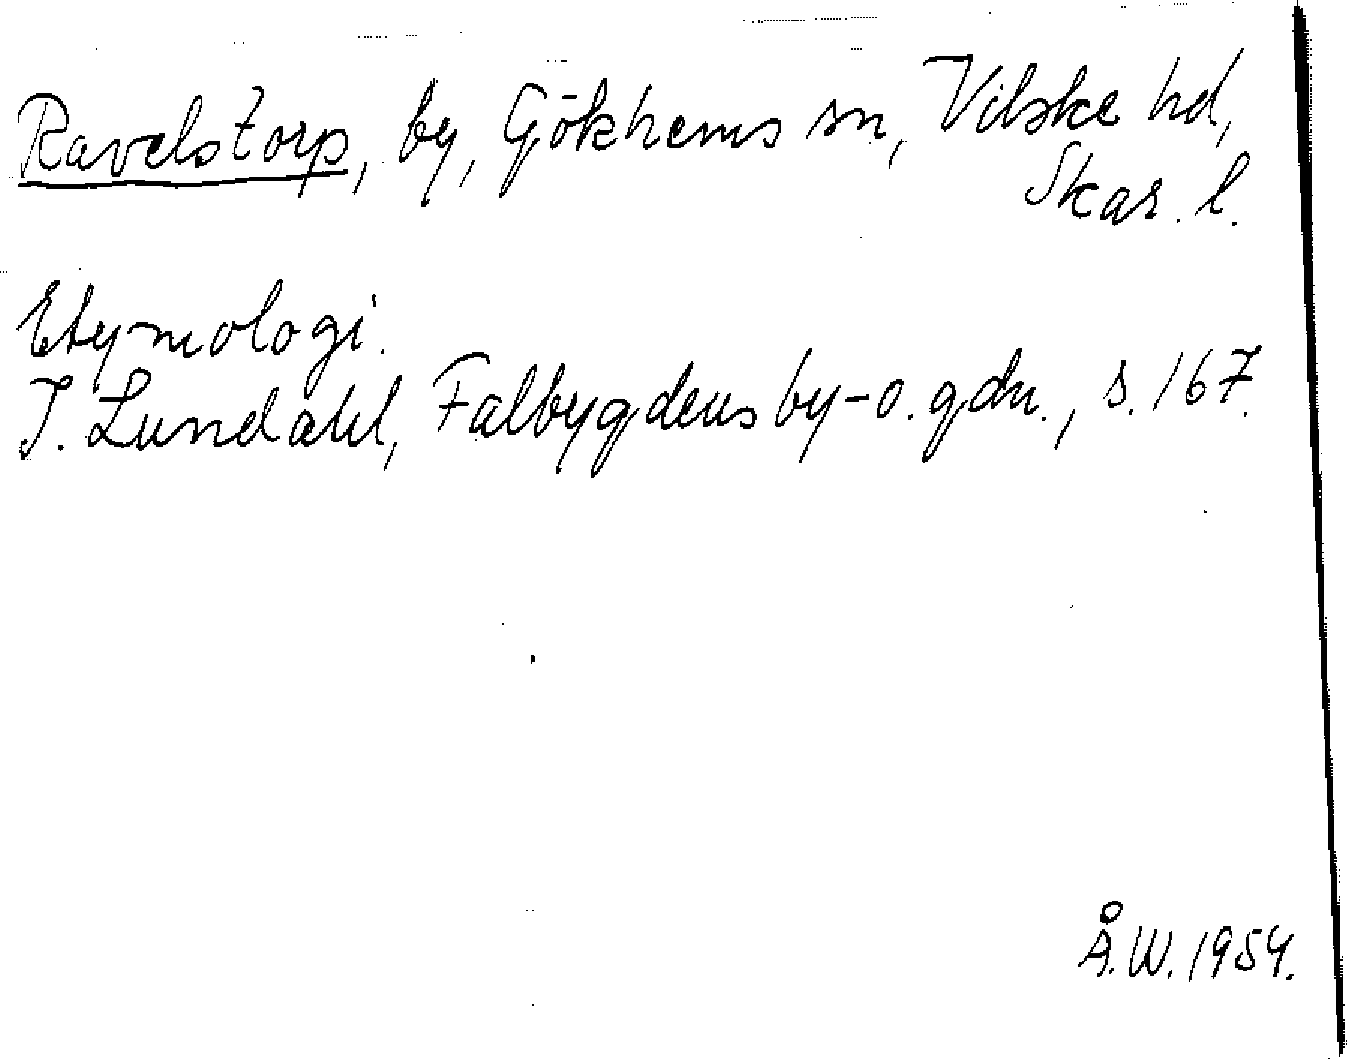 Ravelstorp, by, Gökhems sn, Vilske hd,
Skar. l.
Etymologi.
I. Lundahl, Falbygdens by- o. gdn., s. 167.
Å.W. 1954.